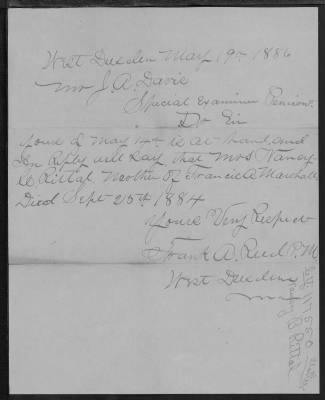 West Dresden May 19th 1886
Mr J. A. Davis
Special Examiner Pensions
Dr Sir
Yours of May 14th is at hand and
In Reply will Say that Mrs Nancy
B Rittal Mother of Francis A Marshall
Died Sept 25th 1884
Yours Very Respect
Frank A. Reed P.M
West Dresden
Nancy B Rittal